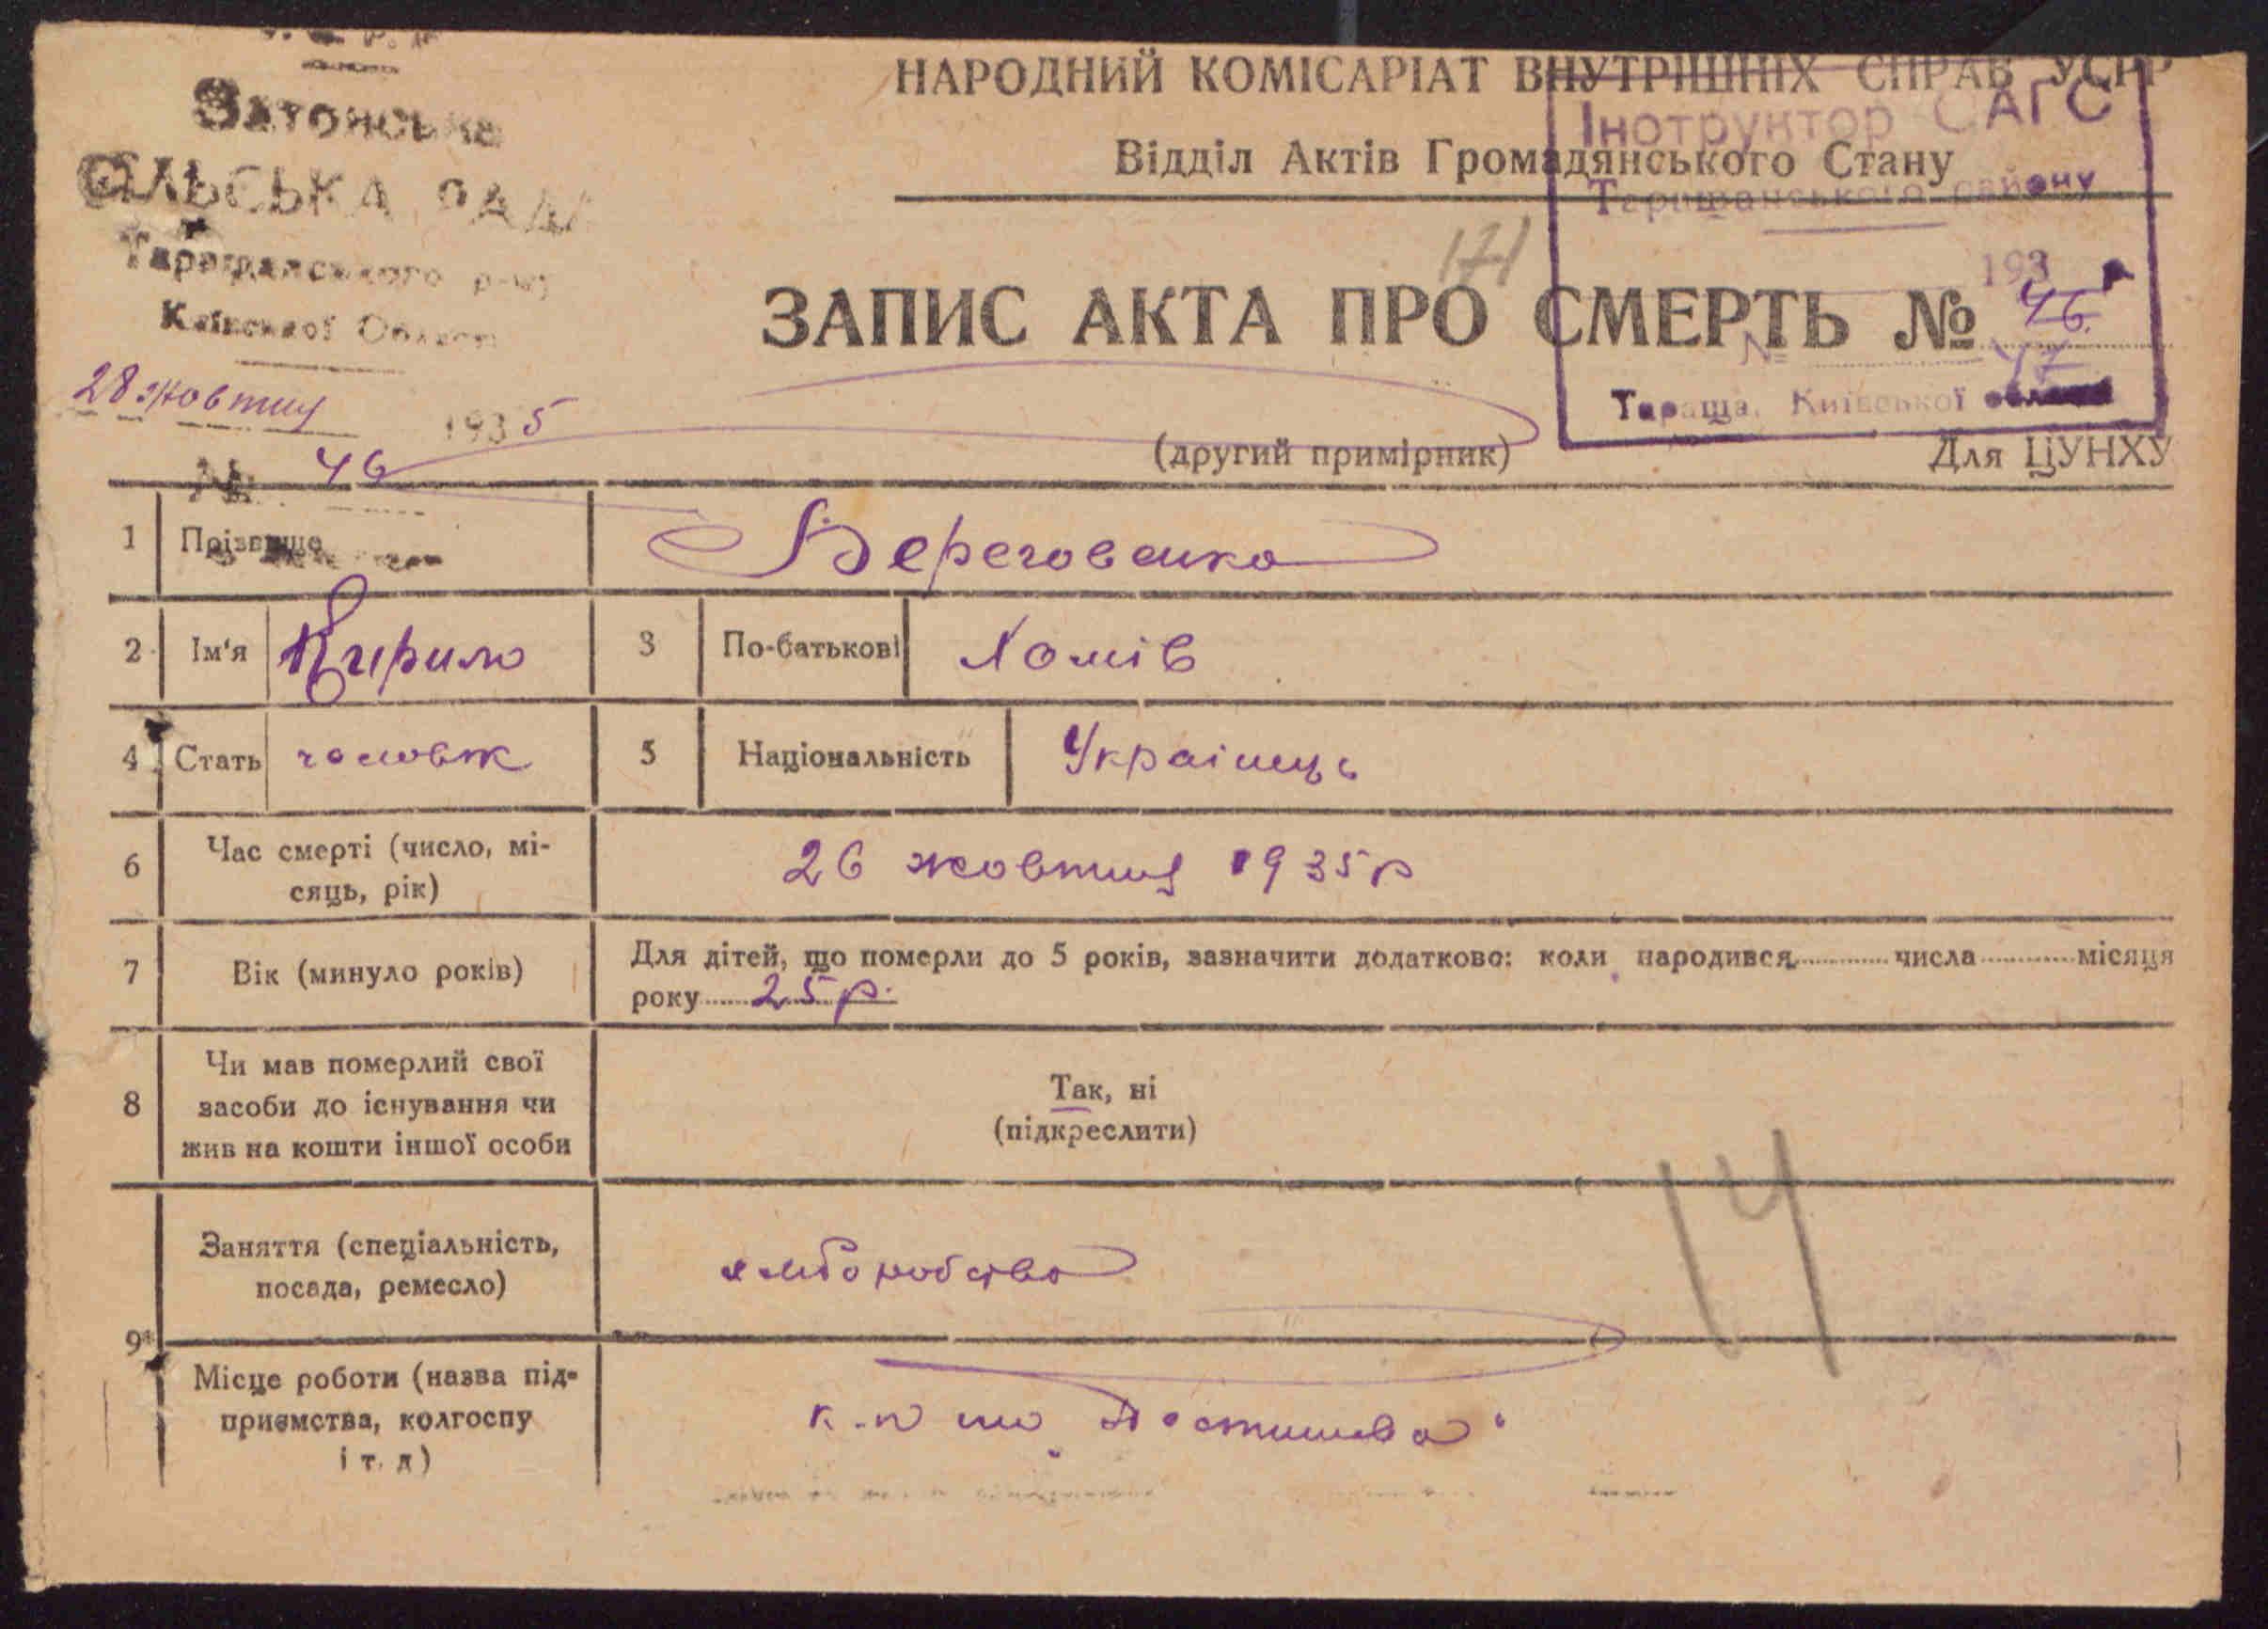 Затонська
СІЛЬСЬКА РАДА
Таращанського р-ну
Київської Області
28 жовтня 1935
№ 46
НАРОДНИЙ КОМІСАРІАТ ВНУТРІШНІХ СПРАВ УСРР
Відділ Актів Громадянського Стану
Інструктор САГС
Таращанського району
193 р
№
Тараща, Київської області
171
ЗАПИС АКТА ПРО СМЕРТЬ № 46
47
(другий примірник)
Для ЦУНХУ
1 Прізвище Береговенко
2 Ім'я Кирило 3 По-батькові Хомів
4 Стать чоловік 5 Національність Українець
6 Час смерті (число, мі-
сяць, рік) 26 жовтня 1935 р
7 Вік (минуло років) Для дітей, що померли до 5 років, зазначити додатково: коли народився числа місяця
року 25 р.
8 Чи мав померлий свої
засоби до існування чи
жив на кошти іншої особи
Так, ні
(підкреслити)
14
9* Заняття (спеціальність,
посада, ремесло) хліборобство
Місце роботи (назва під-
приємства, колгоспу
і т. д) к.п ім "Постишева"